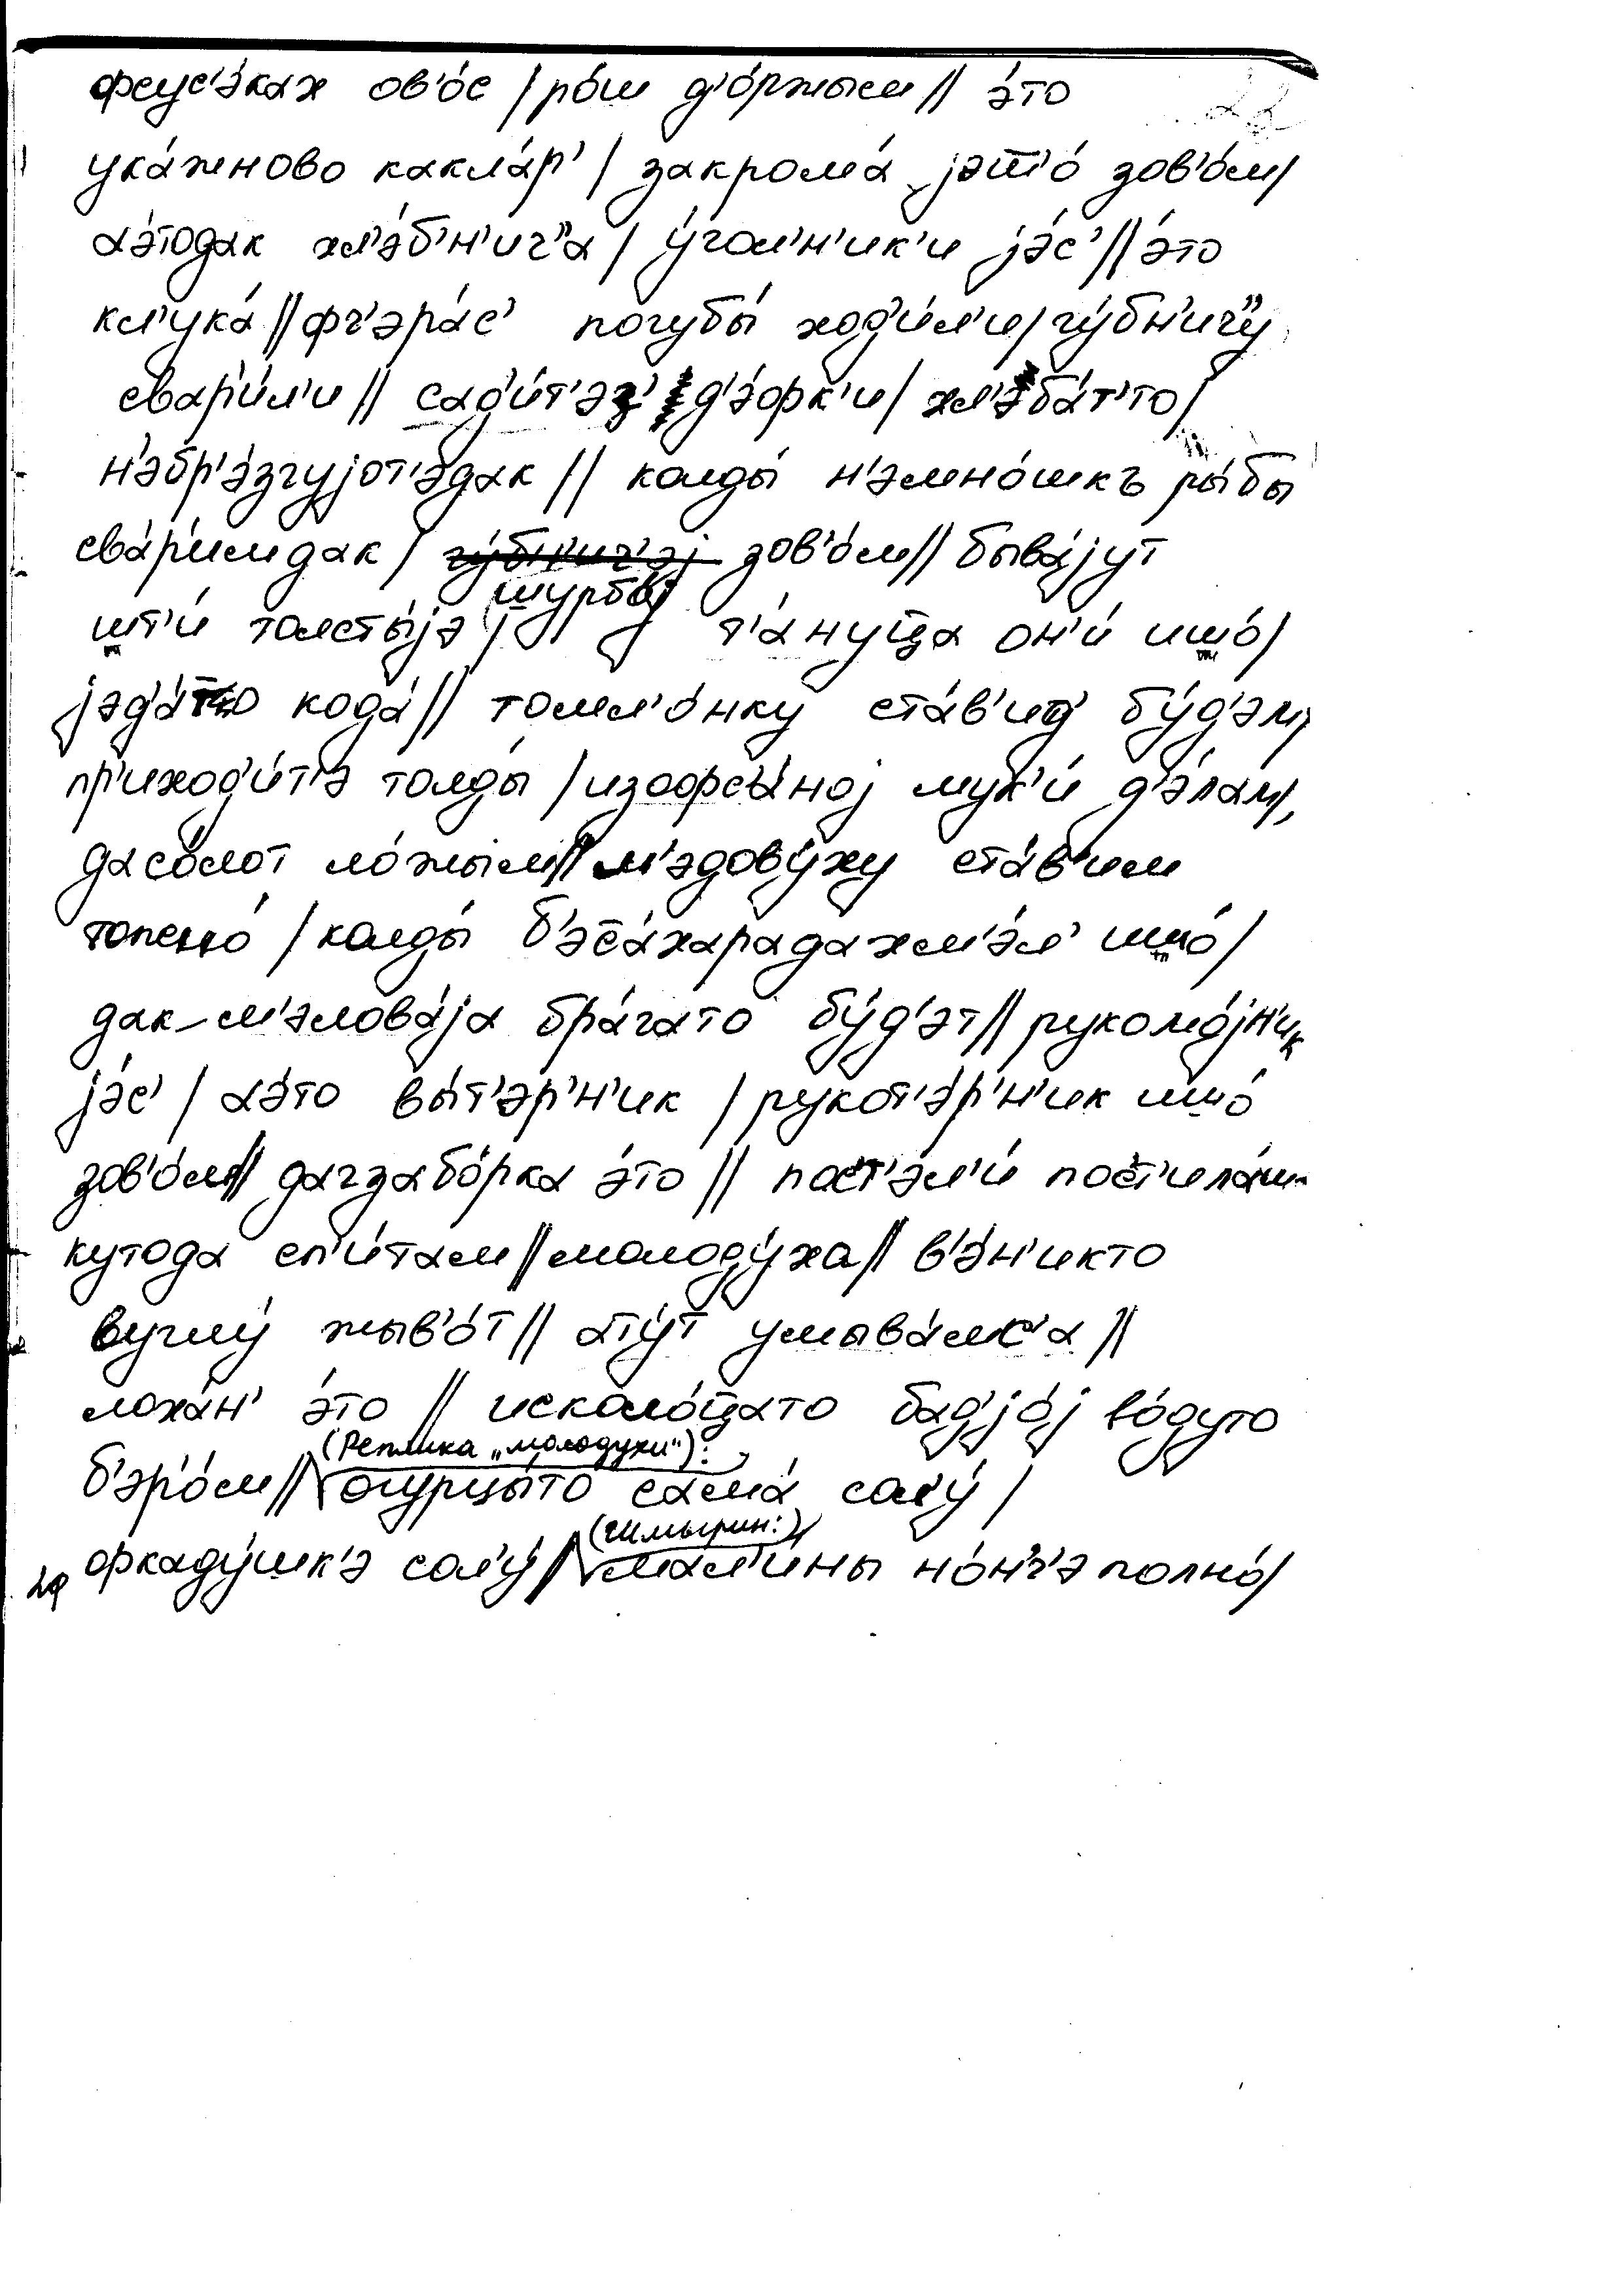 фсус'э́ках ов'о́с / ро́ш д'о́ржым // э́то
ука́жново какла́р' / закрома́ јэт̄'о́ зов'о́м /
аэ́тодак хл'э́б'н'ич'а / у́гол'н'ик'и јэ́с' // э́то
кл'ука́ // фч'эра́с' погубы́ ход'и́л'и / гу́бн'ич'у
свар'и́л'и // сад'и́т'эз' д'э́фк'и / хл'эба́т'то /
н'эбр'э́згујот'эдак // колды́ н'эмно́шкъ ры́бы
сва́р'им дак / гу́бн'ич'эј зов'о́м // быва́јут
шурбо́ј
шт'и́ толсты́јэ / т'а́нуц̄а он'и́ ишо́ /
јэда́т̄о кода́ // томл'о́нку ста́в'ид' бу́д'эм /
пр'иход'и́т'э толды́ / изофс'а́ној мук'и́ д'э́лам /
дасо́лот ло́жым // м'эдову́ху ста́в'им
топ'эр'о́ / колды́ б'эс̄а́харадахм'э́л' ишо́ /
дак м'элова́ја бра́гато бу́д'эт // рукомо́јн'ик
јэ́с' / аэ́то вы́т'эр'н'ик / рукот'э́р'н'ик ишо́
зов'о́м // дагзабо́рка э́то // пост'э́л'и пост'ила́ш-
кутода сп'и́там // молоду́ха // в'э́н'икто
вуглу́ жыв'о́т // ату́т умыва́лс'а //
лоха́н' э́то // исколо́ц̄ато бад'јо́ј во́дуто
(Реплика „молодухи"):
б'эр'о́м // огурцы́то сама́ сол'у́ /
(Чимырин:)
фкаду́шк'э сол'у́ // мал'и́ны но́н'ч'э полно́ /